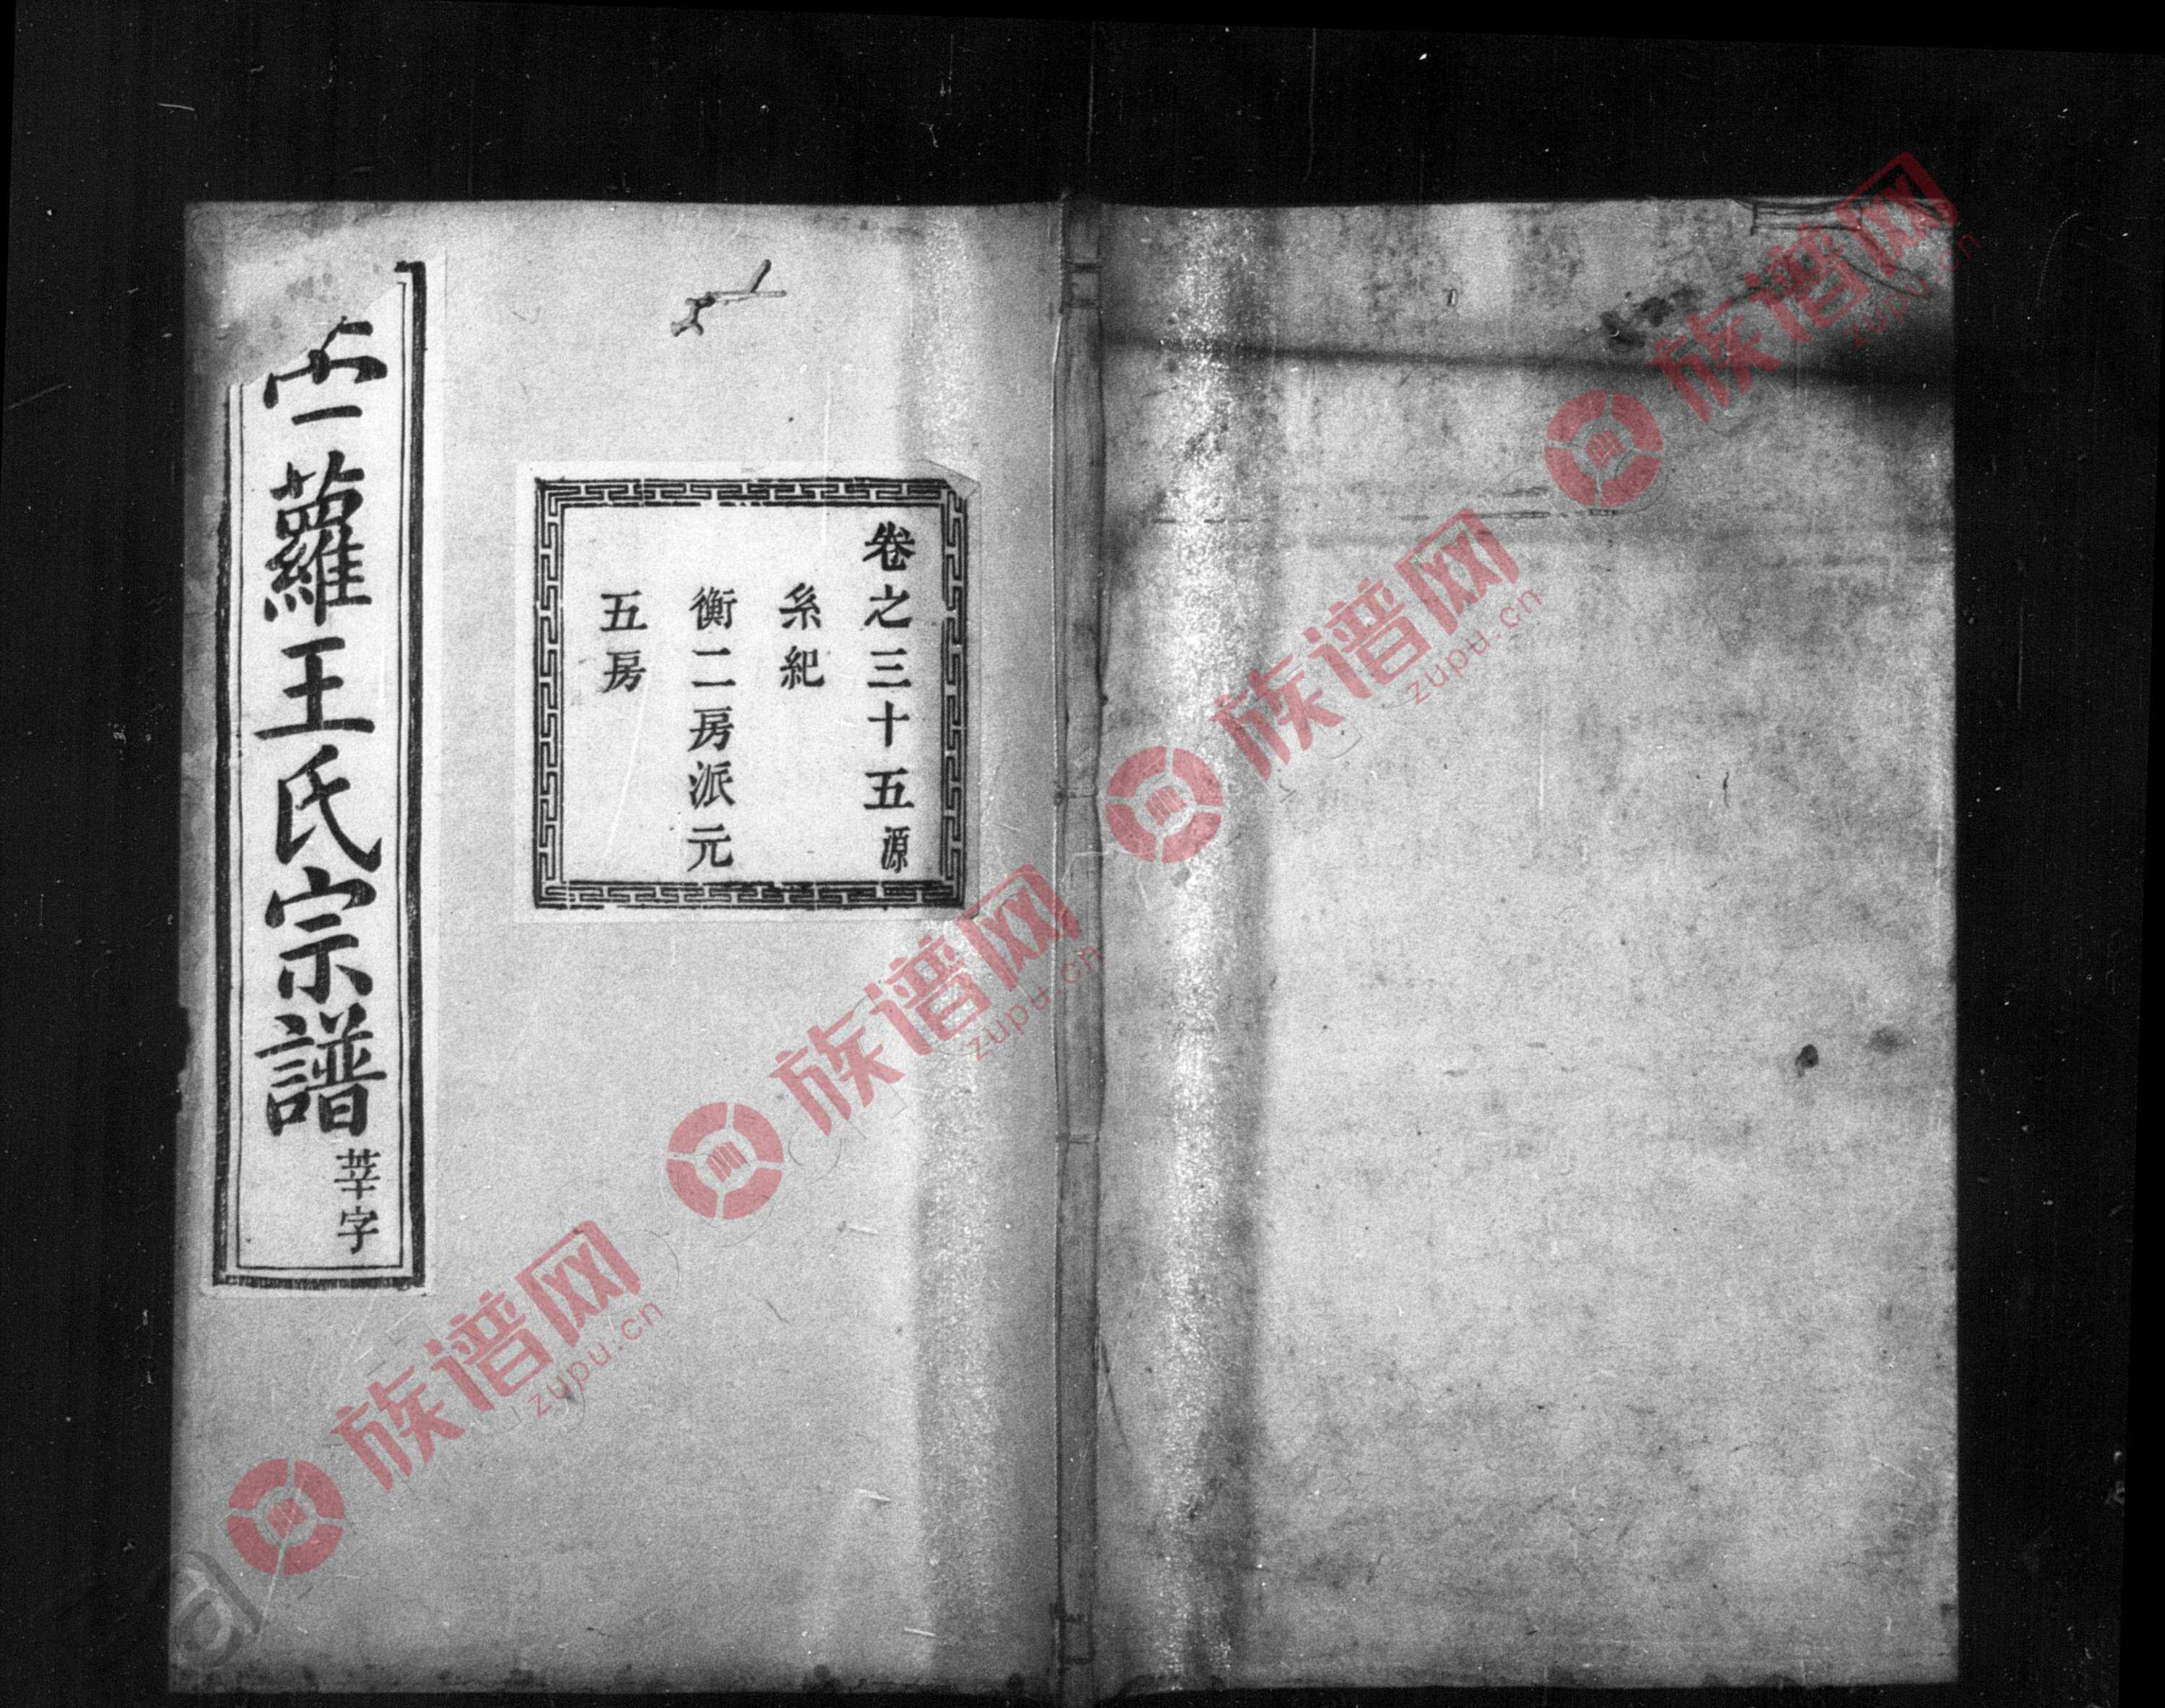 卷之三十五源
糸紀
衡二房派元
五房
蘿王氏宗譜莘字
族谱网
zupu.cn
族谱网
zupu.cn
族谱网
zupu.cn
族谱网
zupu.cn